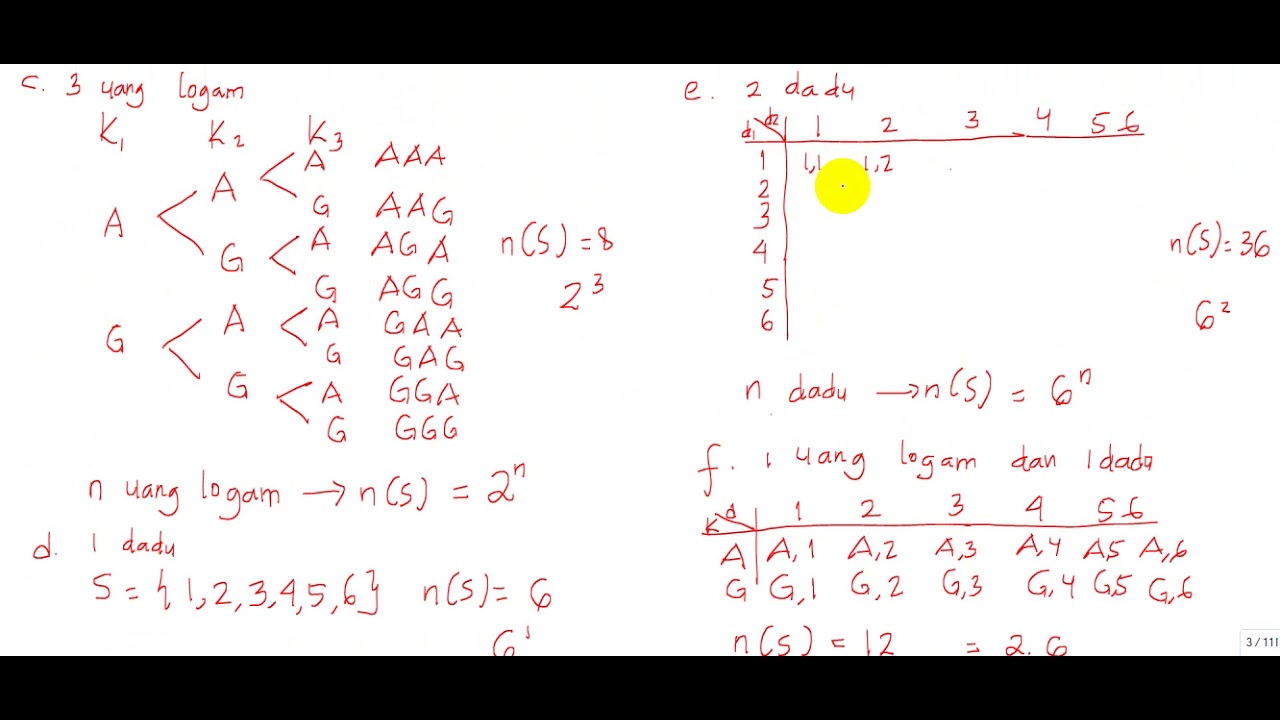 c. 3 uang logam
K1 K2 K3
A A A AAA
G AAG
G A AGA
G AGG
G A A GAA
G GAG
G A GGA
G GGG
n(S) = 8
2^3
n uang logam → n(S) = 2^n
d. 1 dadu
S = {1,2,3,4,5,6} n(S) = 6
6^1
e. 2 dadu
d1 d2 1 2 3 4 5 6
1 1,1 1,2
2
3
4
5
6
n(S) = 36
6^2
n dadu → n(S) = 6^n
f. 1 uang logam dan 1 dadu
K d 1 2 3 4 5 6
A A,1 A,2 A,3 A,4 A,5 A,6
G G,1 G,2 G,3 G,4 G,5 G,6
n(S) = 12 = 2.6
3 / 111